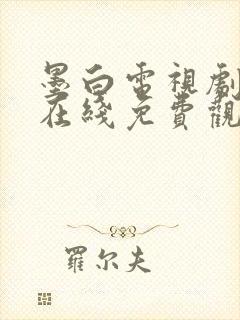 墨白電視劇
在綫免費觀
羅尔夫